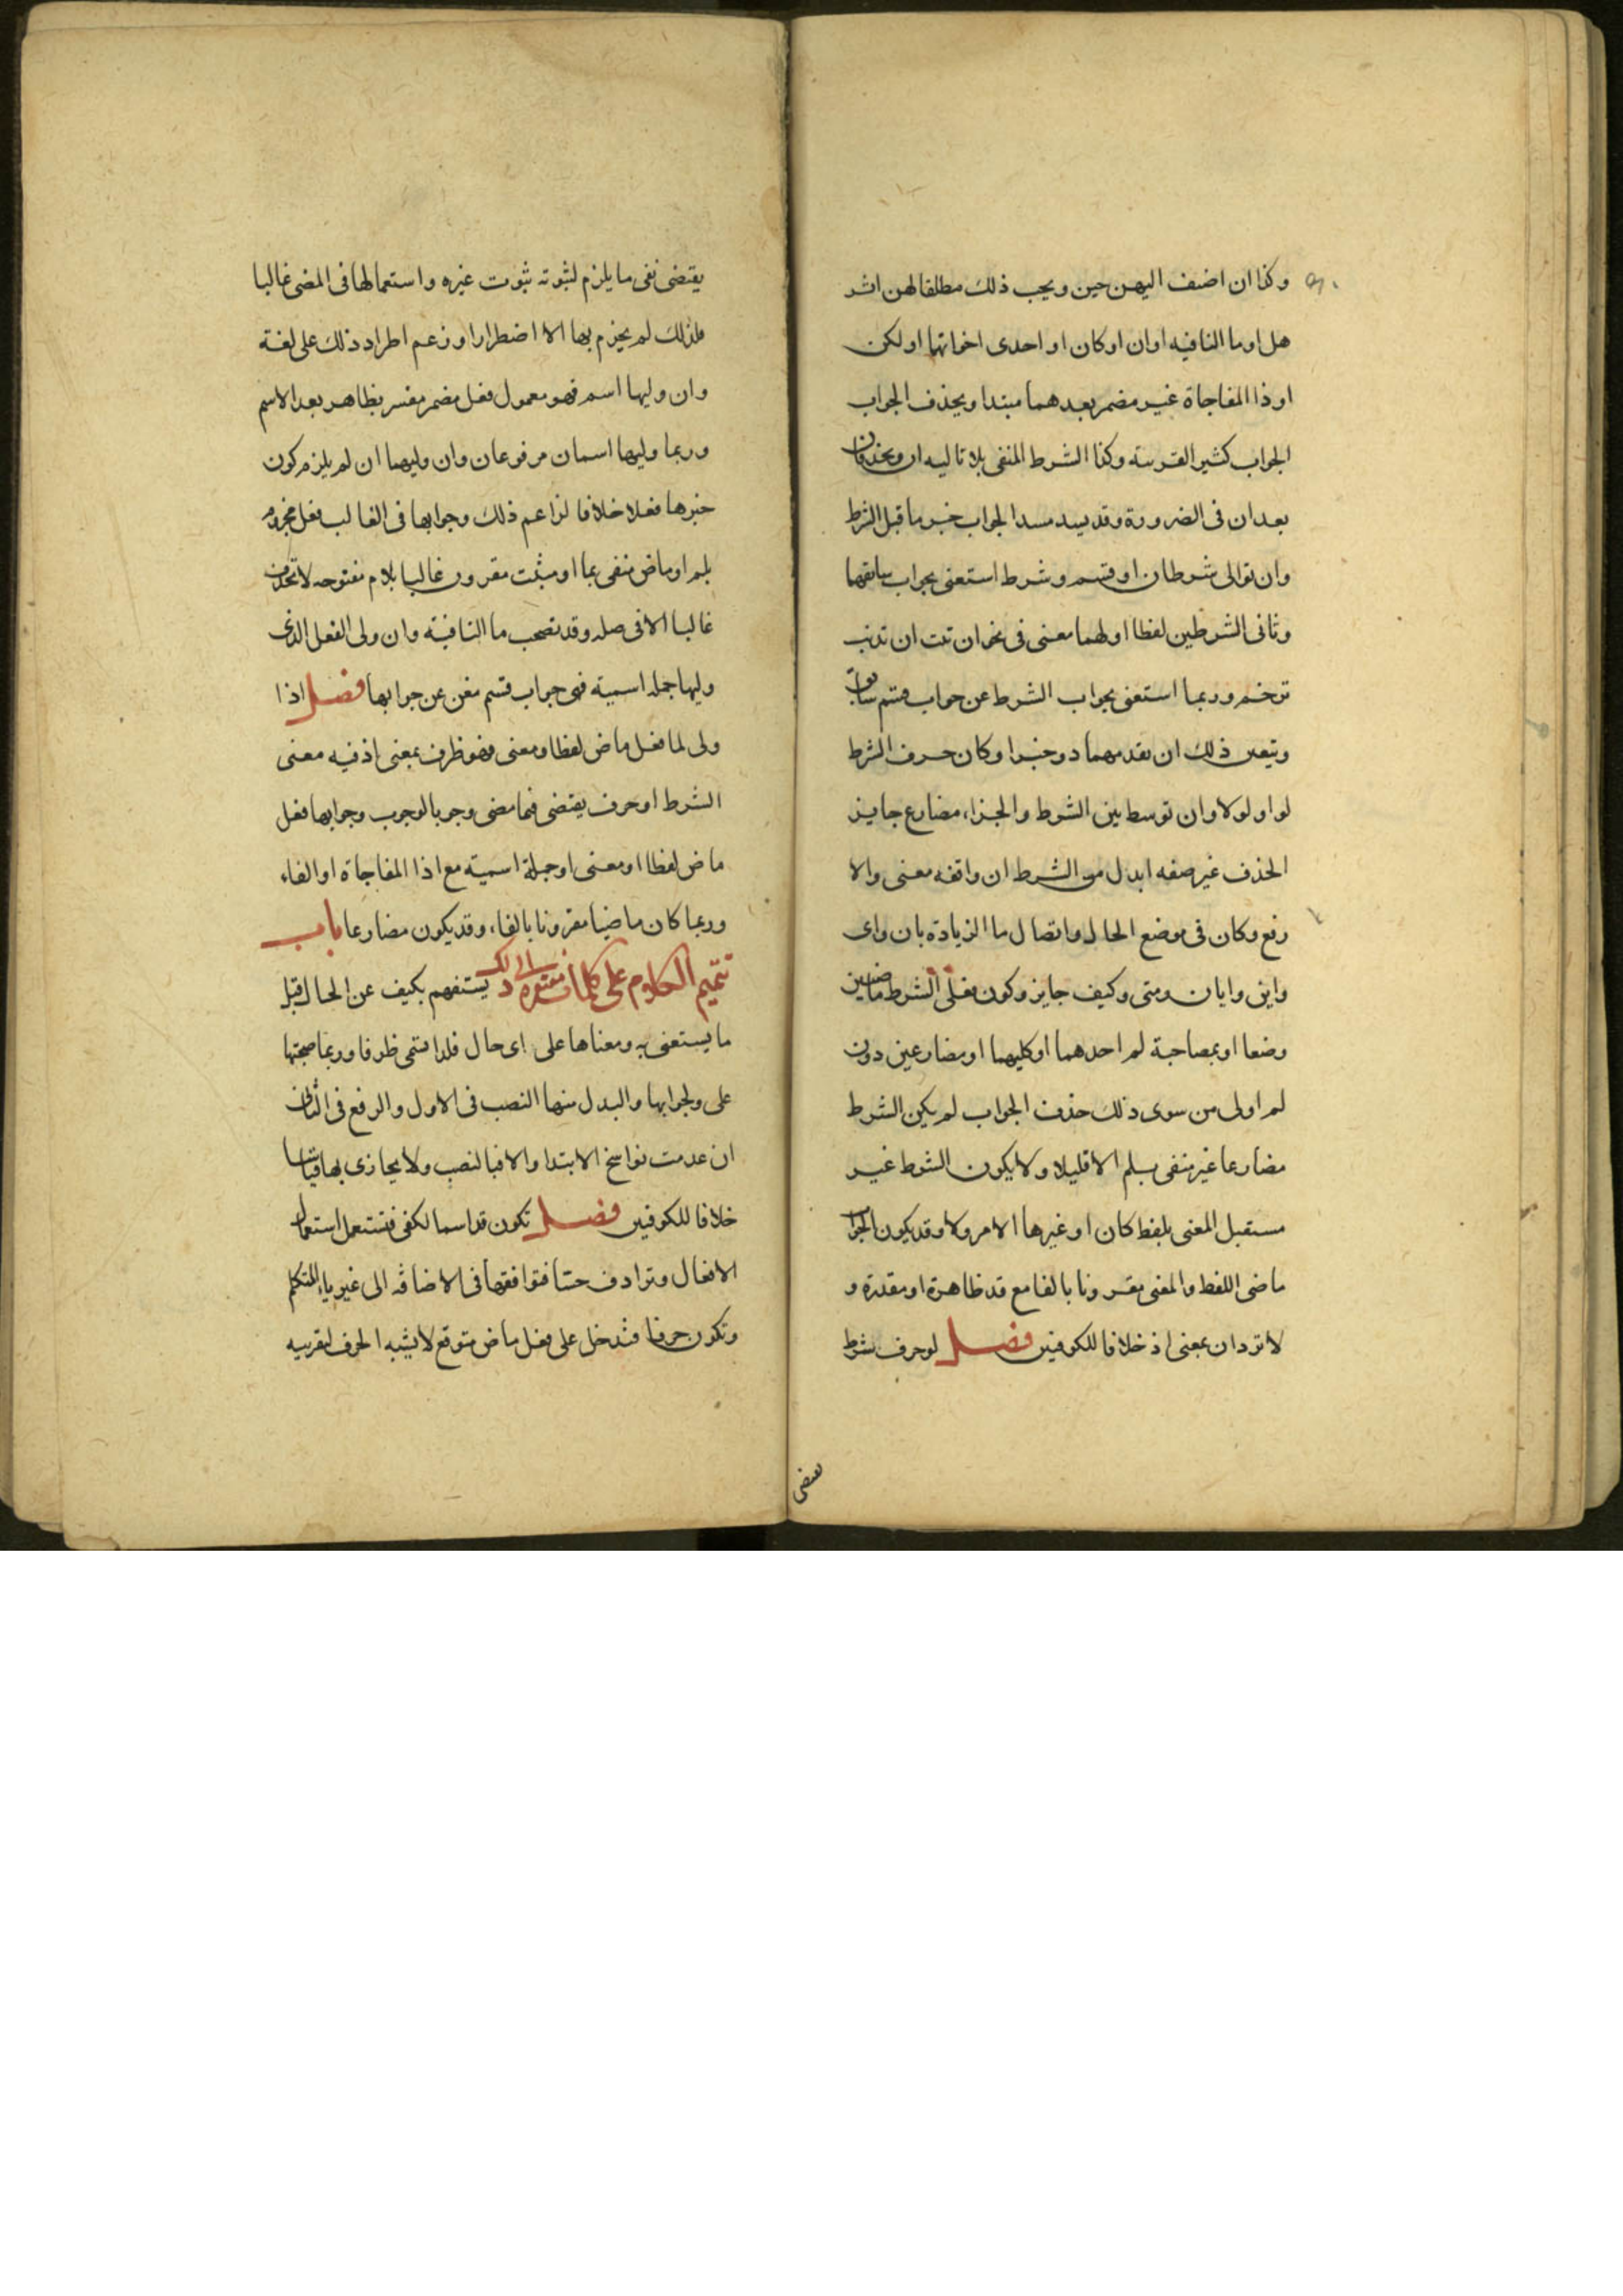 وكذا ان اضيف اليهن حين ويجب ذلك مطلقا لهن اثر
هل او ما النافيه او ان او كان او احدى اخواتها او لكن
او ذا المفاجاة غير مضمر بعدهما مبتدا ويحذف الجواب
الجواب كثير القرينه وكذا الشرط المنفى بلا تاليه ان ويحذفان
بعد ان فى الضرورة وقد يسد مسد الجواب خبر ما قبل الشرط
وان توالى شرطان او قسم وشرط استغنى بجواب سابقهما
وثانى الشرطين لفظا اولهما معنى فى نحو ان تبت ان تذنب
ترحم وربما استغنى بجواب الشرط عن جواب قسم سابق
ويتعين ذلك ان تقدمهما ذو خبر او كان حرف الشرط
لو او لولا وان توسط بين الشرط والجزاء مضارع جايز
الحذف غير صفه ابدل من الشرط ان وافقه معنى والا
رفع وكان فى موضع الحال واتصال ما الزيادة بان واى
واين وايان ومتى وكيف جايز وكون فعلى الشرط ماضيين
وضعا او بمصاحبة لم احدهما او كليهما او مضارعين دون
لم اولى من سوى ذلك حذف الجواب لم يكن الشرط
مضارعا غير منفى بلم الا قليلا ولا يكون الشرط غير
مستقبل المعنى بلفظ كان او غيرها الا مروولا وقد يكون الجواب
ماضى اللفظ والمعنى مقرونا بالفا مع قد ظاهرة او مقدرة و
لا ترد ان بمعنى اذ خلافا للكوفيين فصل لو حرف شرط
يقتضى
يقتضى نفى ما يلزم لثبوته ثبوت غيره واستعمالها فى المضى غالبا
فلذلك لم يجزم بها الا اضطرارا وزعم اطراد ذلك على لغة
وان وليها اسم فهو معمول فعل مضمر مفسر بظاهر بعد الاسم
وربما وليها اسمان مرفوعان وان وليهما ان لم يلزم كون
خبرها فعلا خلافا لزاعم ذلك وجوابها فى الغالب فعل مجزوم
بلم او ماض منفى بما او مثبت مقرون غالبا بلام مفتوحه لا تحذف
غالبا الا فى صله وقد تصحب ما النافية وان ولى الفعل الذى
وليها جمله اسمية فهى جواب قسم مغن عن جوابها فصل اذا
ولى لما فعل ماض لفظا ومعنى فهو ظرف بمعنى اذ فيه معنى
الشرط او حرف يقتضى فيما مضى وجوبا لوجوب وجوابها فعل
ماض لفظا او معنى او جملة اسمية مع اذا المفاجاة او الفاء
وربما كان ماضيا مقرونا بالفاء وقد يكون مضارعا باب
تتميم الكلام على كلمات مفتقرة الى ذلك يستفهم بكيف عن الحال قبل
ما يستغنى به ومعناها على اى حال فلذا تسمى ظرفا وربما صحبتها
على ولجوابها والبدل منها النصب فى الاول والرفع فى الثانى
ان عدمت نواسخ الابتدا والا فبالنصب ولا يجازى بها قياسا
خلافا للكوفيين فصل تكون قد اسما لكفى فتستعمل استعمال
الافعال وترادف حسبا فتوافقها فى الاضافه الى غير ياء المتكلم
وتكون حرفا فتدخل على فعل ماض متوقع لا يشبه الحرف لتقريبه